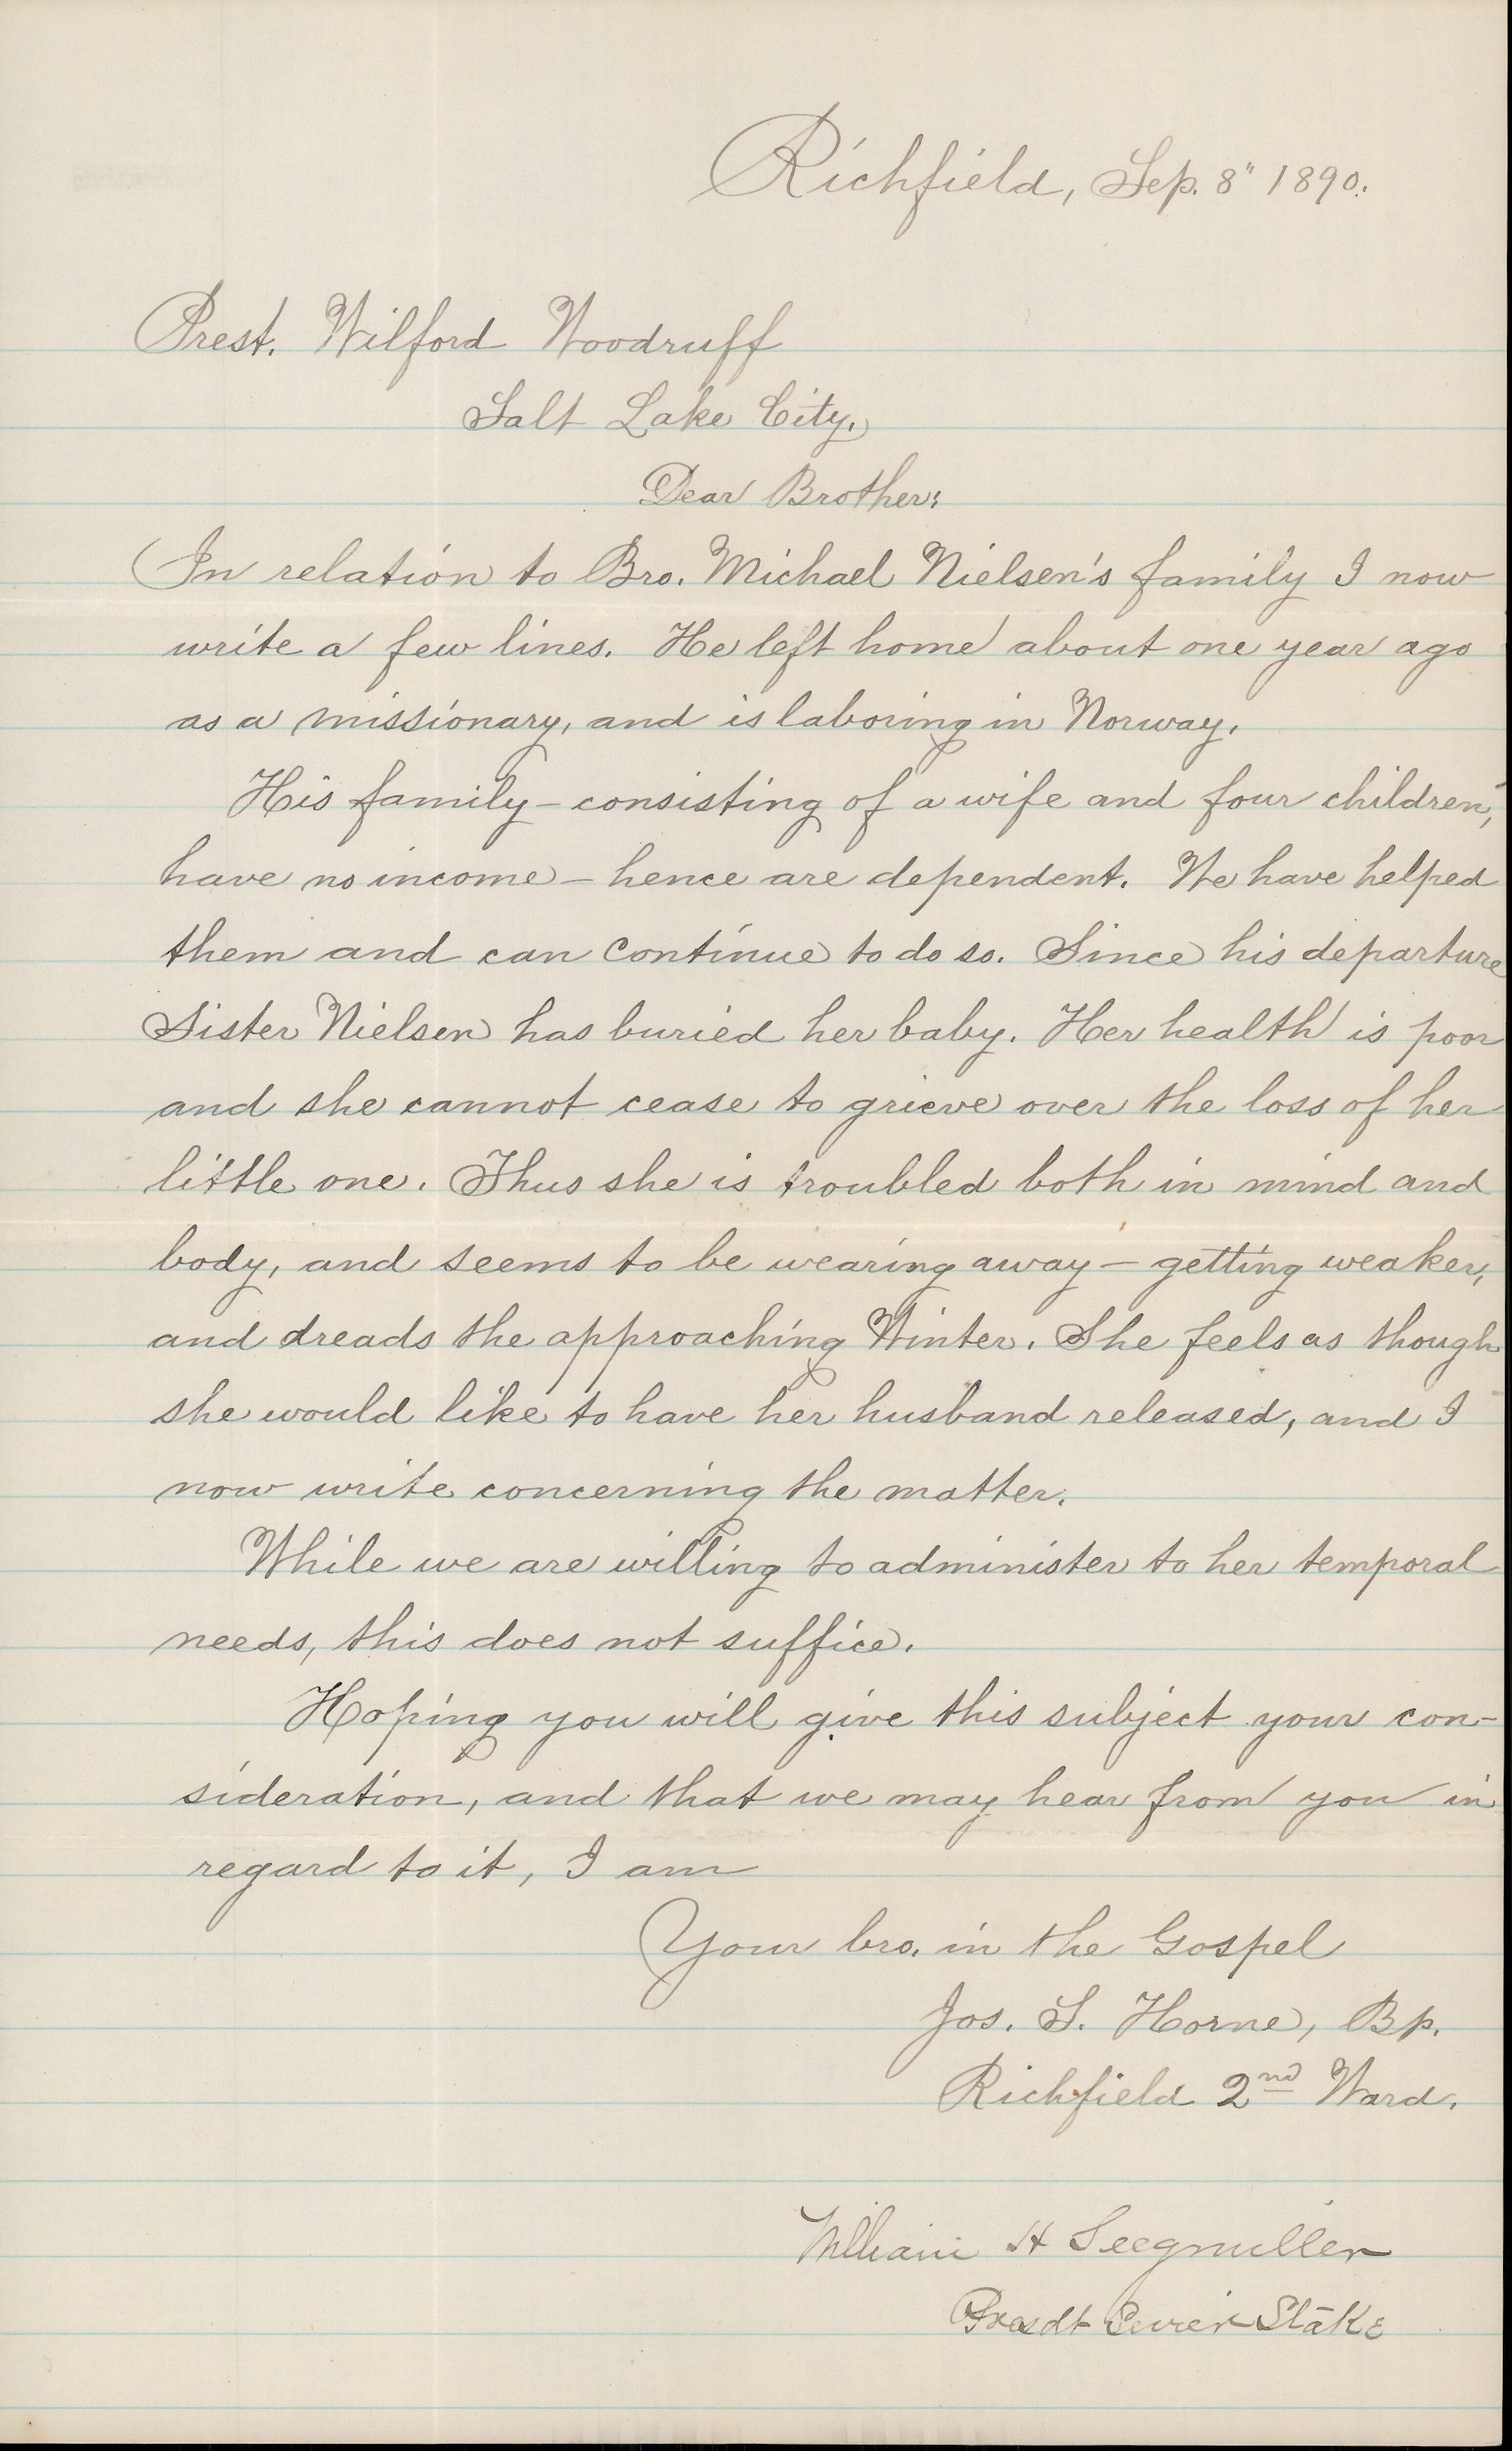 Richfield, Sep. 8" 1890.
Prest. Wilford Woodruff
Salt Lake City.
Dear Brother:
In relation to Bro. Michael Nielsen's family I now
write a few lines. He left home about one year ago
as a missionary, and is laboring in Norway.
His family – consisting of a wife and four children,
have no income – hence are dependent. We have helped
them and can continue to do so. Since his departure
Sister Nielsen has buried her baby. Her health is poor
and she cannot cease to grieve over the loss of her
little one. Thus she is troubled both in mind and
body, and seems to be wearing away – getting weaker,
and dreads the approaching Winter. She feels as though
she would like to have her husband released, and I
now write concerning the matter.
While we are willing to administer to her temporal
needs, this does not suffice.
Hoping you will give this subject your con-
sideration, and that we may hear from you in
regard to it, I am
Your bro. in the Gospel
Jos. S. Horne, Bp.
Richfield 2nd Ward.
William H Seegmiller
Presdt Sevier Stake